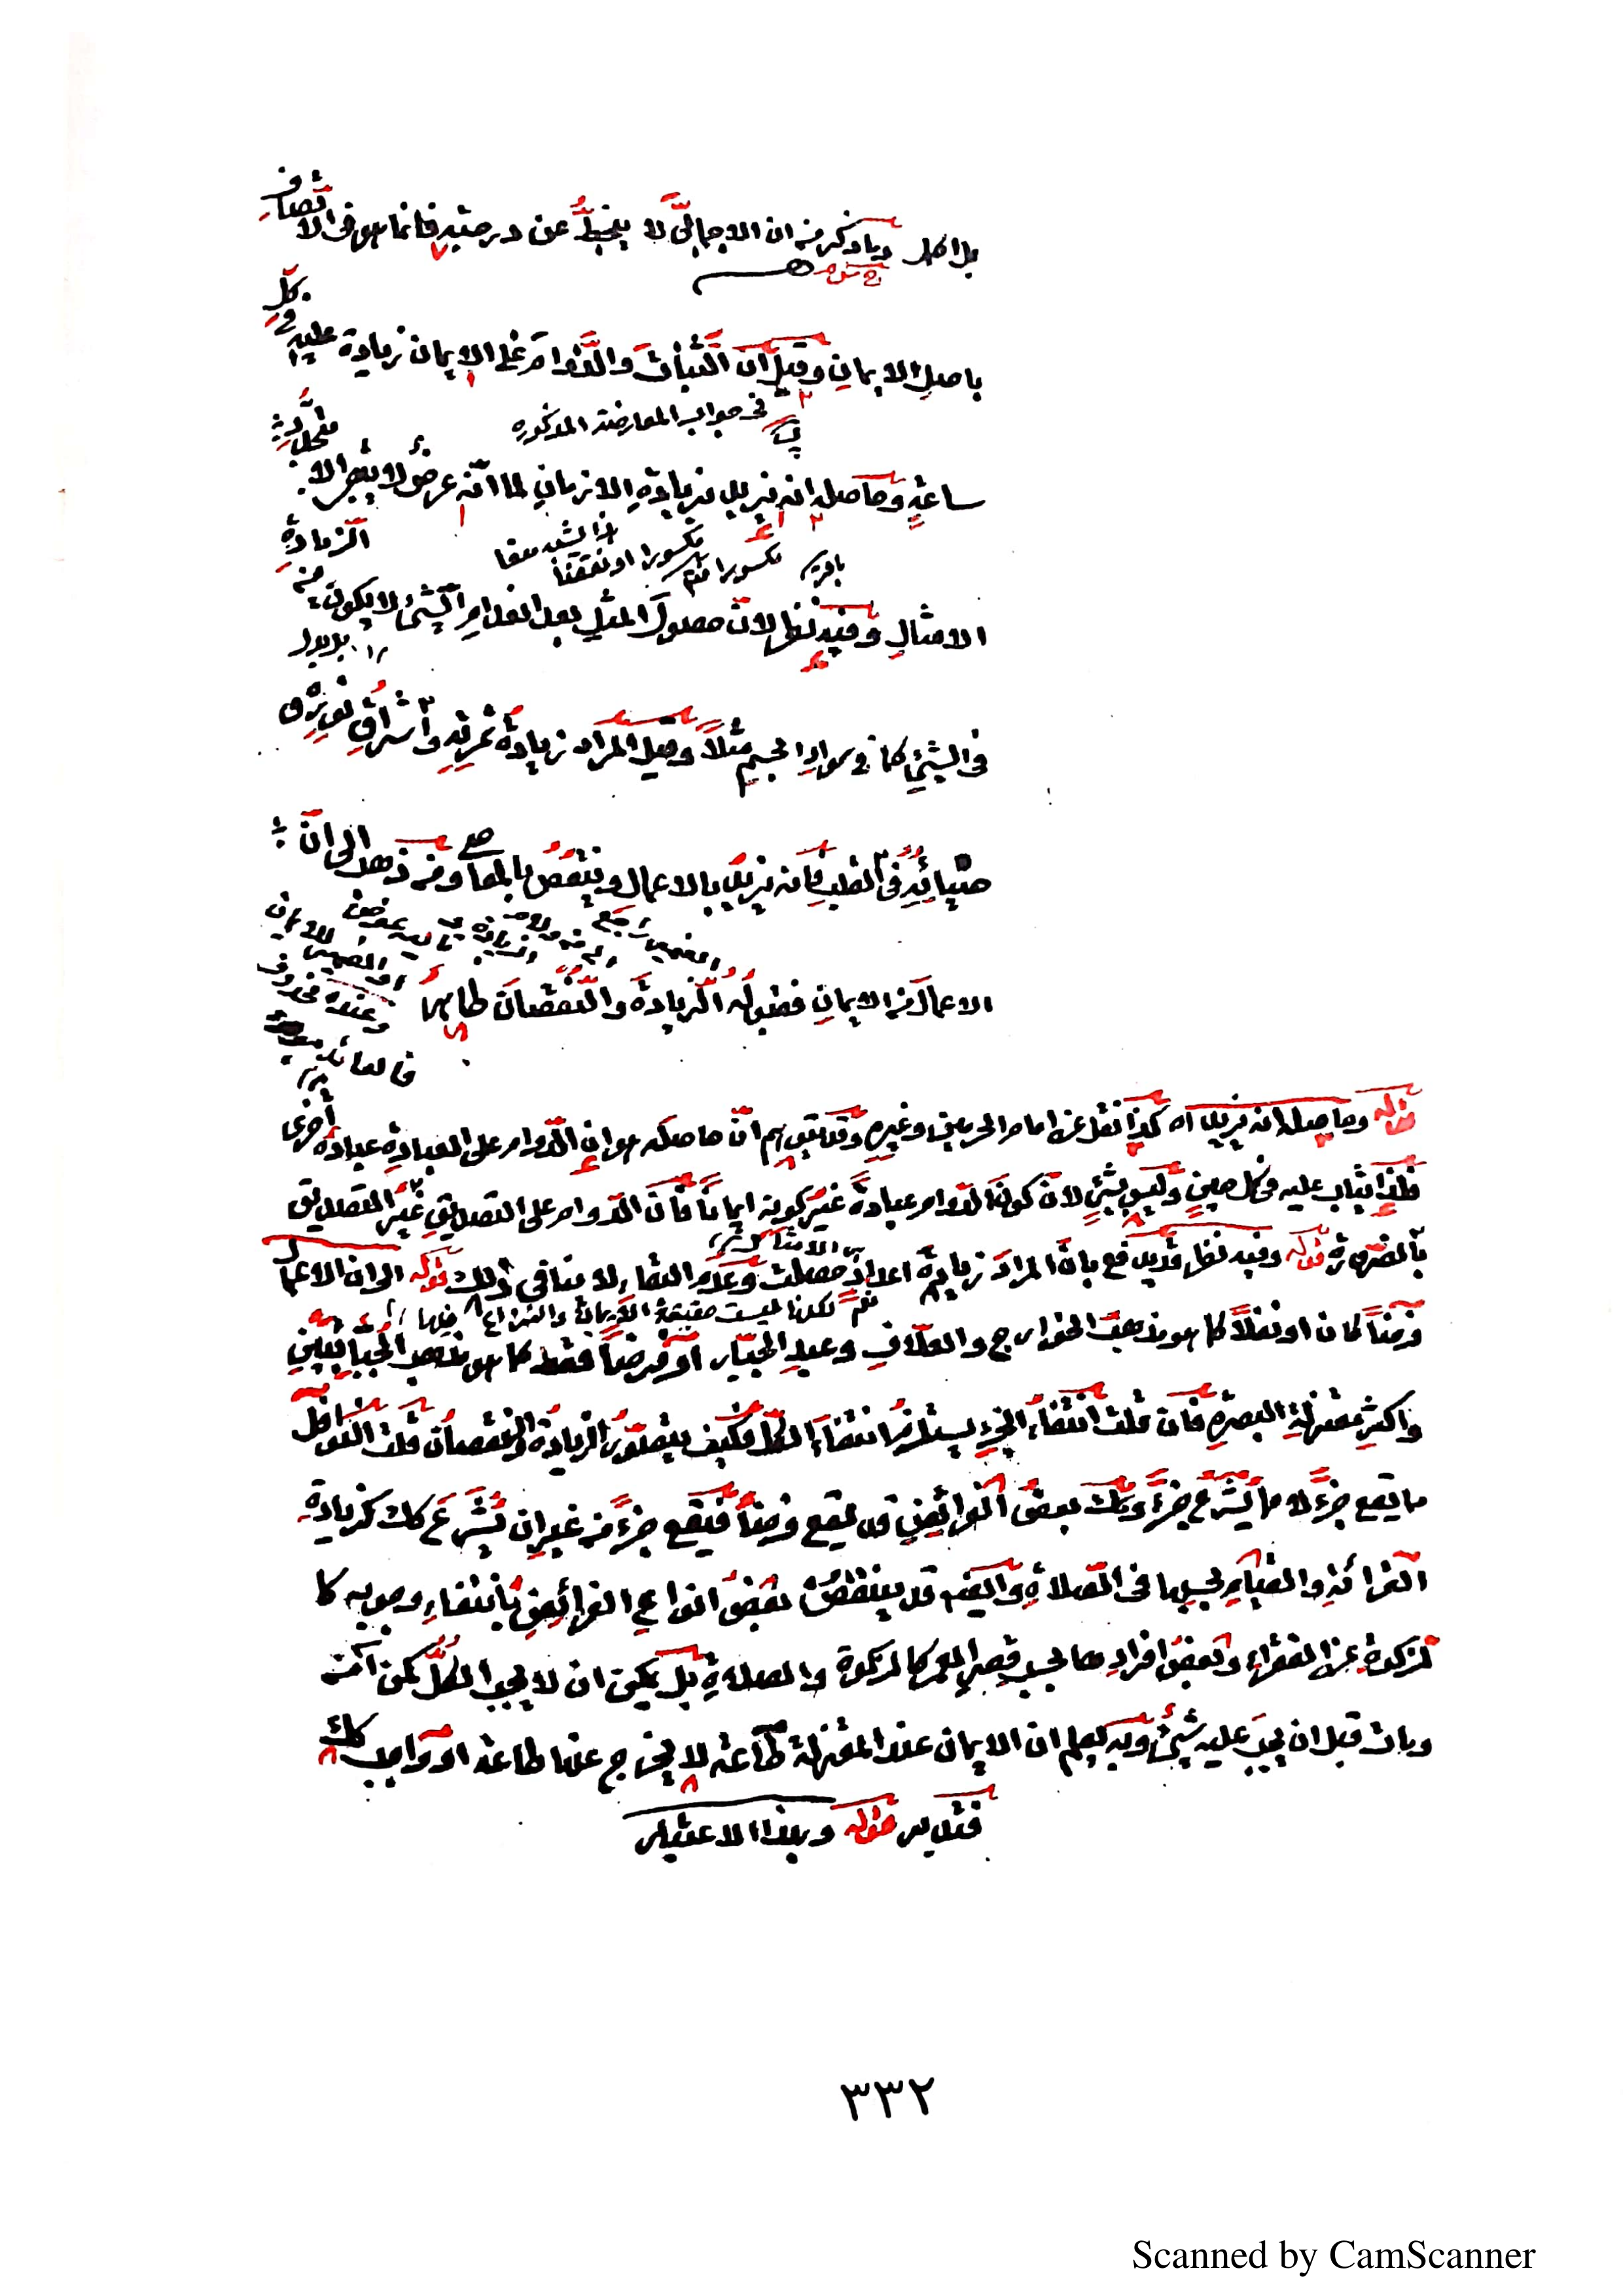 بل اكمل وما ذكر من ان الاجمالي لا ينحط عن درجته فانما هو في الاتصاف
باصل الايمان وقيل ان الثبات والدوام على الايمان زيادة عليه في كل
في جواب المعارضة المذكورة
ساعة وحاصله انه يزيد بزيادة الازمان لما انه عرض لا يبقى الا بتجدد
الامثال وفيه نظر لان حصول المثل بعد انعدام الشئ لا يكون من الزيادة
في الشئ كما في سواد الجسم مثلا وقيل المراد زيادة ثمرته واشراق نوره و
ضيائه في القلب فانه يزيد بالاعمال وينقص بالمعاصي ومن ذهب الى ان
الاعمال من الايمان فقبوله الزيادة والنقصان ظاهر
قوله وحاصله انه يزيد اه كذا نقل عن امام الحرمين وغيره وقد يتوهم ان حاصله هو ان الدوام على العبادة عبادة اخرى
فلذا يثاب عليه في كل حين وليس بشئ لان كون الدوام عبادة غير كونه ايمانا فان الدوام على التصديق غير التصديق
بالضرورة قوله وفيه نظر قد يدفع بان المراد زيادة اعداد حصلت وعدم البقاء لا ينافي ذلك قوله الى ان الاعمال
فرضا كان او نفلا كما هو مذهب الخوارج والعلاف وعبد الجبار او فرضا فقط كما هو مذهب الجبائيين
واكثر معتزلة البصرة فان قلت انتفاء الجزء يستلزم انتفاء الكل فكيف يتصور الزيادة والنقصان قلت النوافل
مما يقع جزء لا مما يشرع جزء وكذا بعض الفرائض قد يقع فرضا فيقع جزء من غير ان يشرع كذلك كزيادة
القراءة والقيام بحسبها في الصلاة وايضا قد ينتقص بعض انواع الفرائض بانتفاء وجوبه كا
لزكوة عن الفقراء وبعض افرادها بحسب قصر العمر كالزكوة والصلاة بل يمكن ان لا يجب الكل كمن آمن
ومات قبل ان يجب عليه شئ وبه يعلم ان الايمان عند المعتزلة طاعة لا يخرج عنها طاعة او واجب كذلك
فتدبر قوله وبهذا الاعتبار
٣٣٢
Scanned by CamScanner